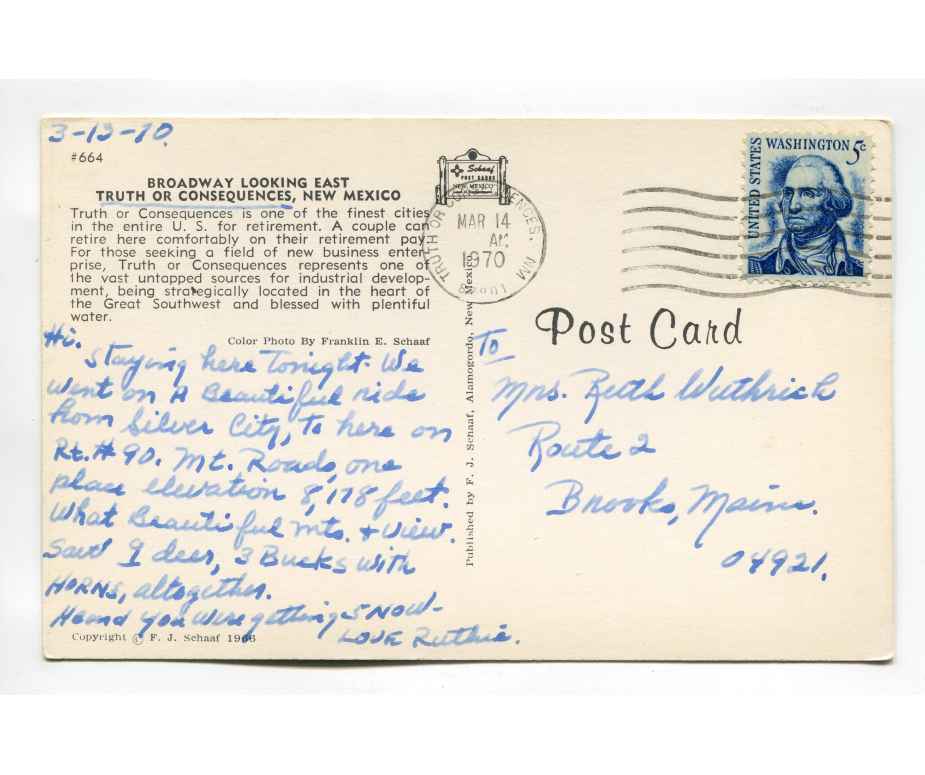 3-13-70.
#664
BROADWAY LOOKING EAST
TRUTH OR CONSEQUENCES, NEW MEXICO
Truth or Consequences is one of the finest cities
in the entire U. S. for retirement. A couple can
retire here comfortably on their retirement pay.
For those seeking a field of new business enter-
prise, Truth or Consequences represents one of
the vast untapped sources for industrial develop-
ment, being strategically located in the heart of
the Great Southwest and blessed with plentiful
water.
Color Photo By Franklin E. Schaaf
Hi.
Staying here Tonight. We
went on A Beautiful ride
from Silver City, To here on
Rt. # 90. Mt. Roads, one
place elevation 8,178 feet.
What Beautiful Mts. & View.
Saw 9 deer, 3 Bucks with
HORNS, altogether.
Heard you were getting SNOW-
LOVE Ruthie.
Copyright © F. J. Schaaf 1966
Schaaf
POST CARDS
NEW MEXICO
TRUTH OR CONSEQUENCES, NM
MAR 14
AM
1970
Published by F. J. Schaaf, Alamogordo, New Mexico
UNITED STATES
WASHINGTON 5c
Post Card
To
Mrs. Ruth Wuthrich
Route 2
Brooks, Maine.
04921.